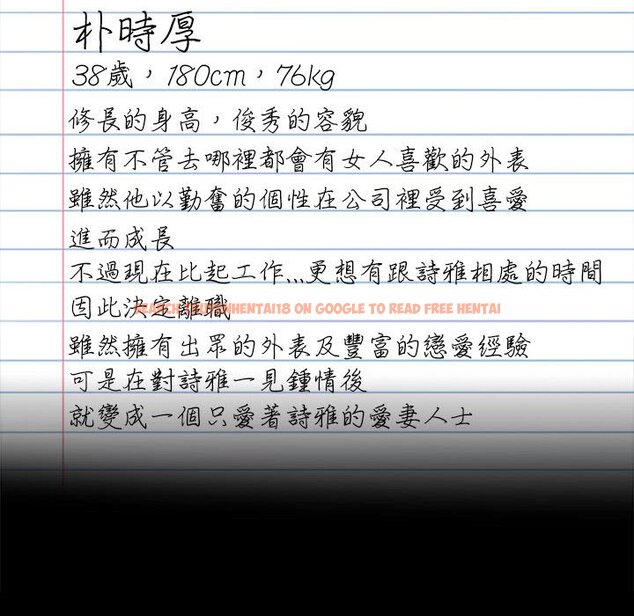 朴時厚
38歲，180cm，76kg
修長的身高，俊秀的容貌
擁有不管去哪裡都會有女人喜歡的外表
雖然他以勤奮的個性在公司裡受到喜愛
進而成長
不過現在比起工作...更想有跟詩雅相處的時間
因此決定離職
雖然擁有出眾的外表及豐富的戀愛經驗
可是在對詩雅一見鍾情後
就變成一個只愛著詩雅的愛妻人士